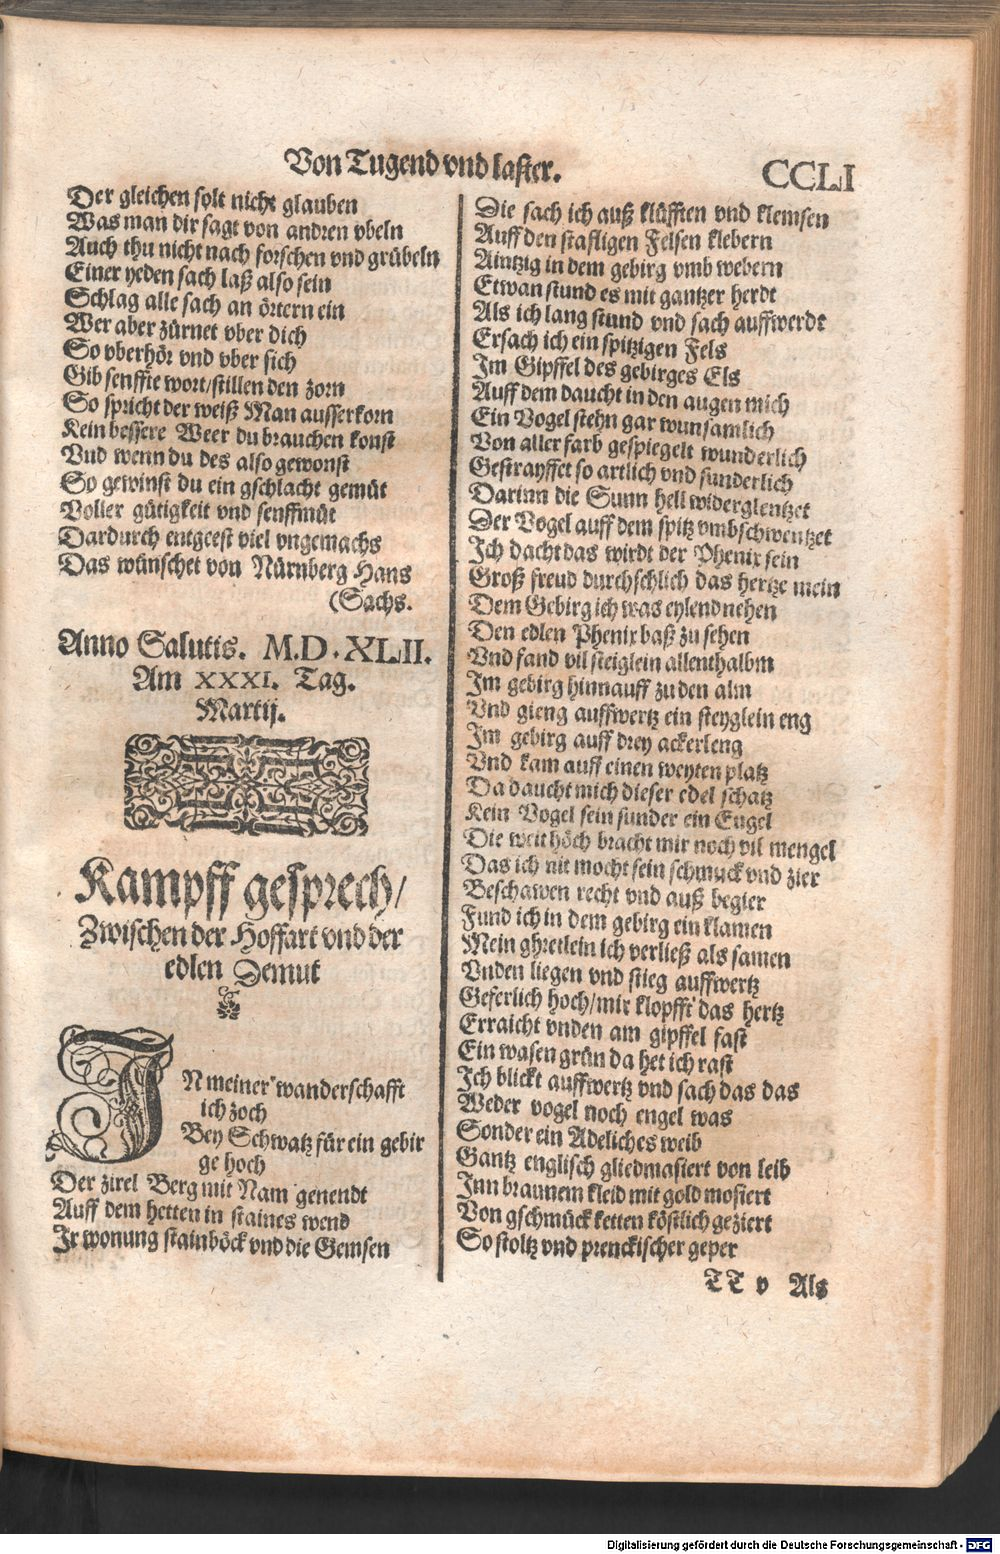 Von Tugend vnd laster.
CCLI
Der gleichen solt nicht glauben
Was man dir sagt von andren vbeln
Auch thu nicht nach forschen vnd grübeln
Einer yeden sach laß also sein
Schlag alle sach an örtern ein
Wer aber zürnet vber dich
So vberhör vnd vber sich
Gib senffte wort/stillen den zorn
So spricht der weiß Man ausserkorn
Kein bessere Weer du brauchen konst
Vud wenn du des also gewonst
So gewinst du ein gschlacht gemüt
Voller gütigkeit vnd senffmüt
Dardurch entgeest viel vngemachs
Das wünschet von Nürnberg Hans
(Sachs.
Anno Salutis. M.D.XLII.
Am XXXI. Tag.
Martij.
Kampff gesprech/
Zwischen der Hoffart vnd der
edlen Demut
IN meiner wanderschafft
ich zoch
Bey Schwatz für ein gebir
ge hoch
Der zirel Berg mit Nam genendt
Auff dem hetten in staines wend
Jr wonung stainböck vnd die Gemsen
Die sach ich auß klüfften vnd klemsen
Auff den stafligen Felsen klebern
Aintzig in dem gebirg vmb webern
Etwan stund es mit gantzer herdt
Als ich lang stund vnd sach auffwerdt
Ersach ich ein spitzigen Fels
Jm Gipffel des gebirges Els
Auff dem daucht in den augen mich
Ein Vogel stehn gar wunsamlich
Von aller farb gespiegelt wunderlich
Gestrayffet so artlich vnd sunderlich
Darinn die Sunn hell widerglentzet
Der Vogel auff dem spitz vmbschwentzet
Ich dacht das wirdt der Phenix sein
Groß freud durchschlich das hertze mein
Dem Gebirg ich was eylend nehen
Den edlen Phenix baß zu sehen
Vnd fand vil steiglein allenthalbm
Jm gebirg hinnauff zu den alm
Vnd gieng auffwertz ein steyglein eng
Jm gebirg auff drey ackerleng
Vnd kam auff einen weyten platz
Da daucht mich dieser edel schatz
Kein Vogel sein sunder ein Engel
Die weit höch bracht mir noch vil mengel
Das ich nit mocht sein schmuck vnd zier
Beschawen recht vnd auß begier
Fund ich in dem gebirg ein klamen
Mein ghretlein ich verließ als samen
Vnden liegen vnd stieg auffwertz
Geferlich hoch/mir klopfft das hertz
Erraicht vnden am gipffel fast
Ein wasen grün da het ich rast
Ich blickt auffwertz vnd sach das das
Weder vogel noch engel was
Sonder ein Adeliches weib
Gantz englisch gliedmasiert von leib
Inn braunem kleid mit gold mosiert
Von gschmück ketten köstlich geziert
So stoltz vnd prenckischer geper
TT v Als
Digitalisierung gefördert durch die Deutsche Forschungsgemeinschaft - DFG